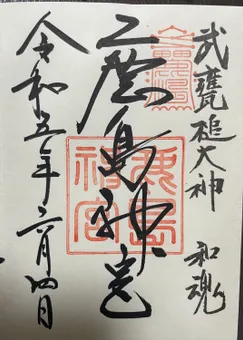 武甕槌大神 和魂
鹿島神宮
鹿島
神宮
令和五年六月四日